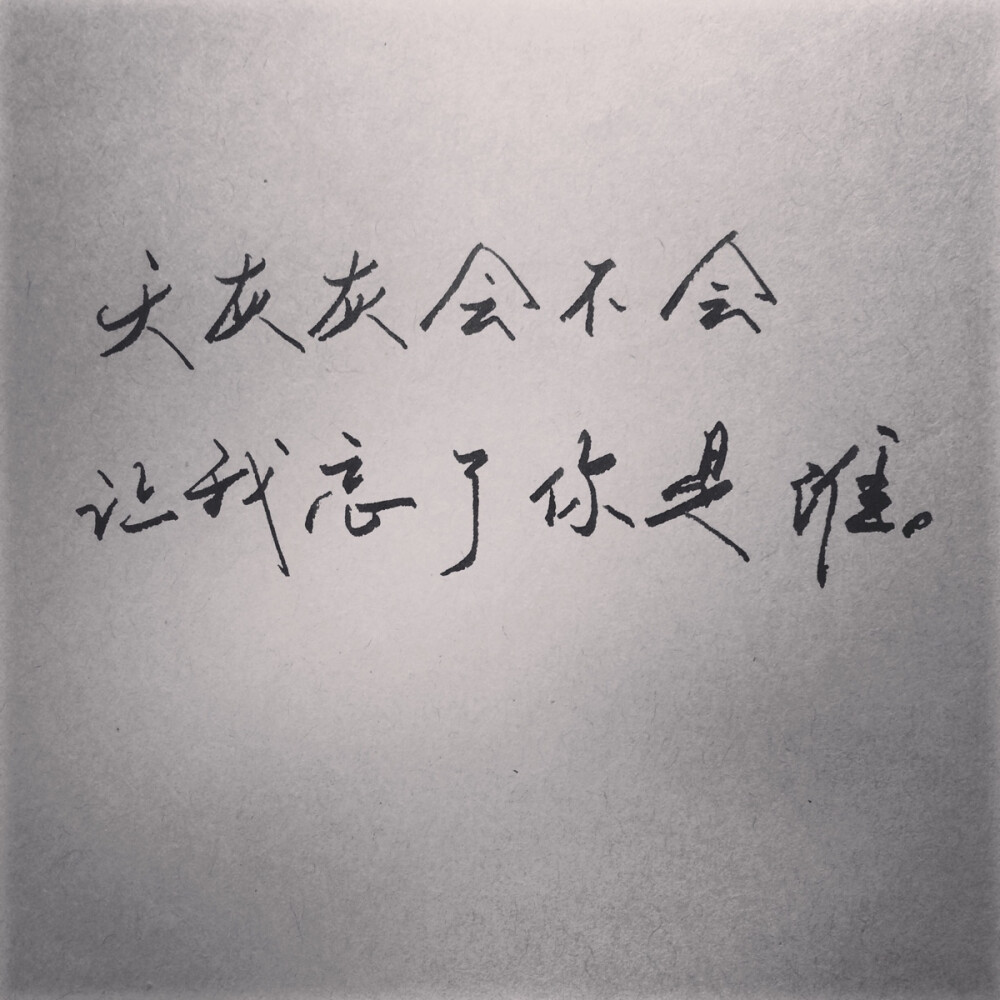 天灰灰会不会
让我忘了你是谁。